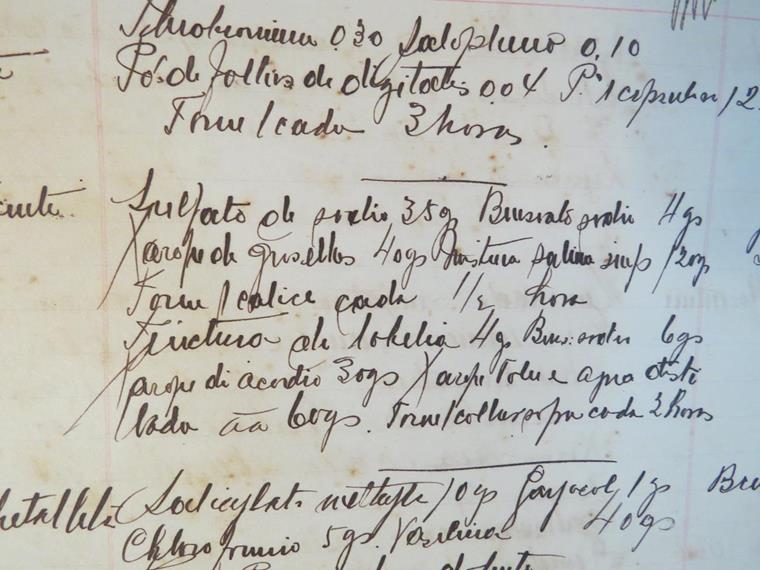 Theobromina 0.30 Scilopheno 0,10
Pó de folhas de digitalis 004 Pª 1 capsula /2
Tome 1 cada 3 horas
Sulfato de sodio 35gs Benzoato sodio 4gs
Xarope de groselhas 40gs Mistura salina simp 120gs
Tome 1 calice cada 1/2 hora
Tinctura de lobelia 4gs Benz: sodio 6gs
Xarope di acordio 30gs Xarope Tolu e agua disti
llada āā 60gs. Tome 1 colher sopa cada 2 horas
Salicylato methyla 10gs Gayacol 1gs
Chloroformio 5gs. Vaselina 40gs